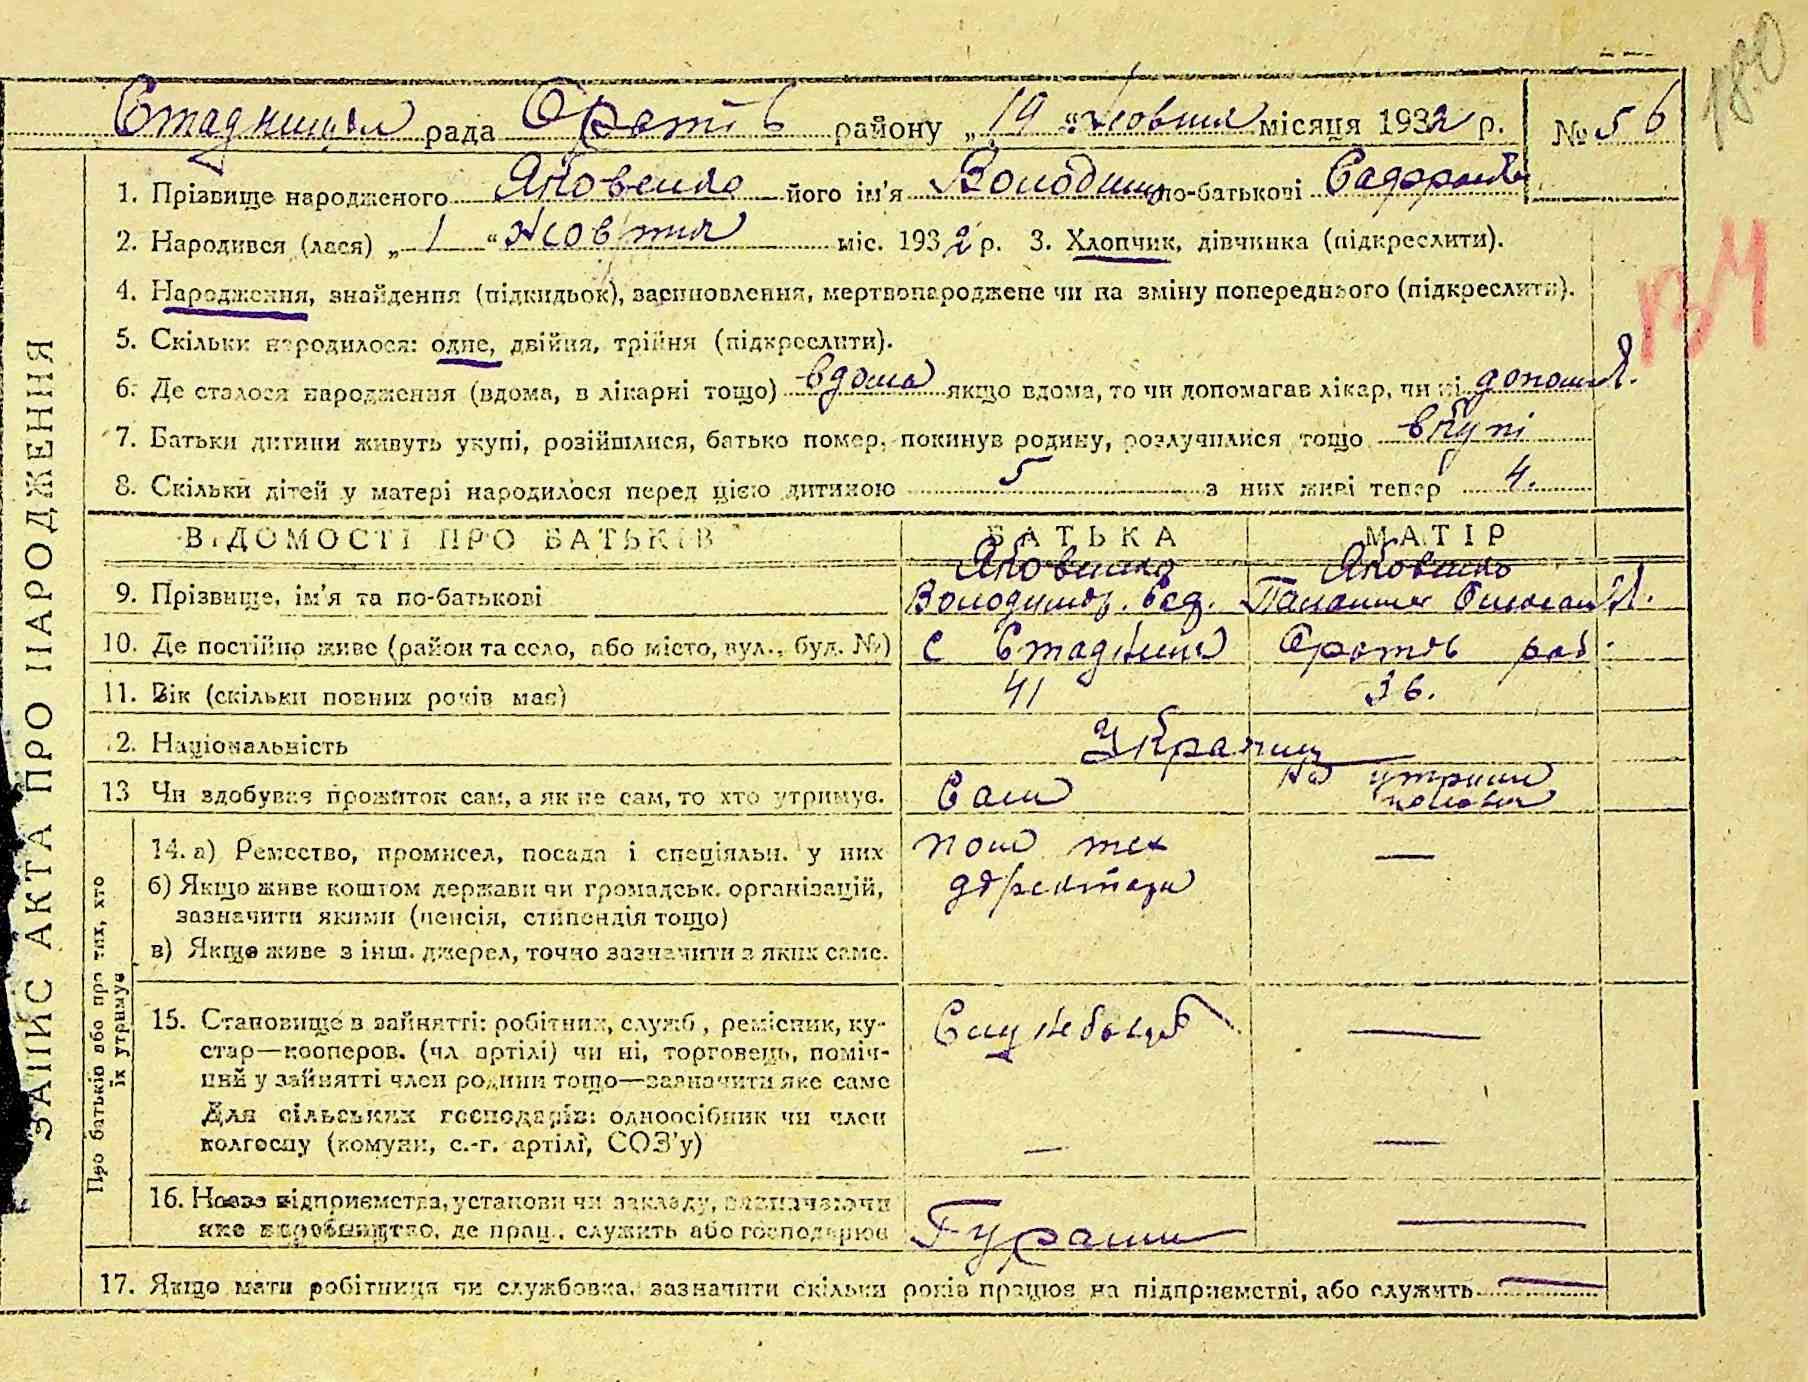 180
Стадницька рада Оратів району „19“ жовтня місяця 1932 р. № 56
1. Прізвище народженого Яковенко його ім'я Володимир по-батькові
2. Народився (лася) „1“ жовтня міс. 1932 р. 3. Хлопчик, дівчинка (підкреслити).
4. Народження, знайдення (підкидьок), засиновлення, мертвонароджене чи на зміну попереднього (підкреслити).
5. Скільки народилося: одне, двійня, трійня (підкреслити).
6. Де сталося народження (вдома, в лікарні тощо) вдома якщо вдома, то чи допомагав лікар, чи ні
7. Батьки дитини живуть укупі, розійшлися, батько помер, покинув родину, розлучилися тощо вкупі
8. Скільки дітей у матері народилося перед цією дитиною 5 з них живі тепер 4.
ВІДОМОСТІ ПРО БАТЬКІВ БАТЬКА МАТІР
9. Прізвище, ім'я та по-батькові Яковенко Володимир. Яковенко
10. Де постійно живе (район та село, або місто, вул., буд. №) с Стадниця Оратів рай.
11. Вік (скільки повних років має) 41 36.
12. Національність Українц
13 Чи здобував прожиток сам, а як не сам, то хто утримує. Сам на утрим
14. а) Ремество, промисел, посада і спеціяльн. у них пом тех —
б) Якщо живе коштом держави чи громадськ. організацій, директора
зазначити якими (пенсія, стипендія тощо)
в) Якщо живе з інш. джерел, точно зазначити з яких саме.
15. Становище в зайнятті: робітник, служб., ремісник, ку- Службовець —
стар—кооперов. (чл артілі) чи ні, торговець, поміч-
ний у зайнятті член родини тощо—зазначити яке саме
Для сільських господарів: одноосібник чи член
колгоспу (комуни, с.-г. артілі, СОЗ'у) — —
16. Назва відприємства, установи чи закладу, зазначаючи
яке виробництво, де прац., служить або господарює —
17. Якщо мати робітниця чи службовка, зазначити скільки років працює на підприємстві, або служить —
ЗАПИС АКТА ПРО НАРОДЖЕННЯ
Про батькію або про тих, хто
їх утримує